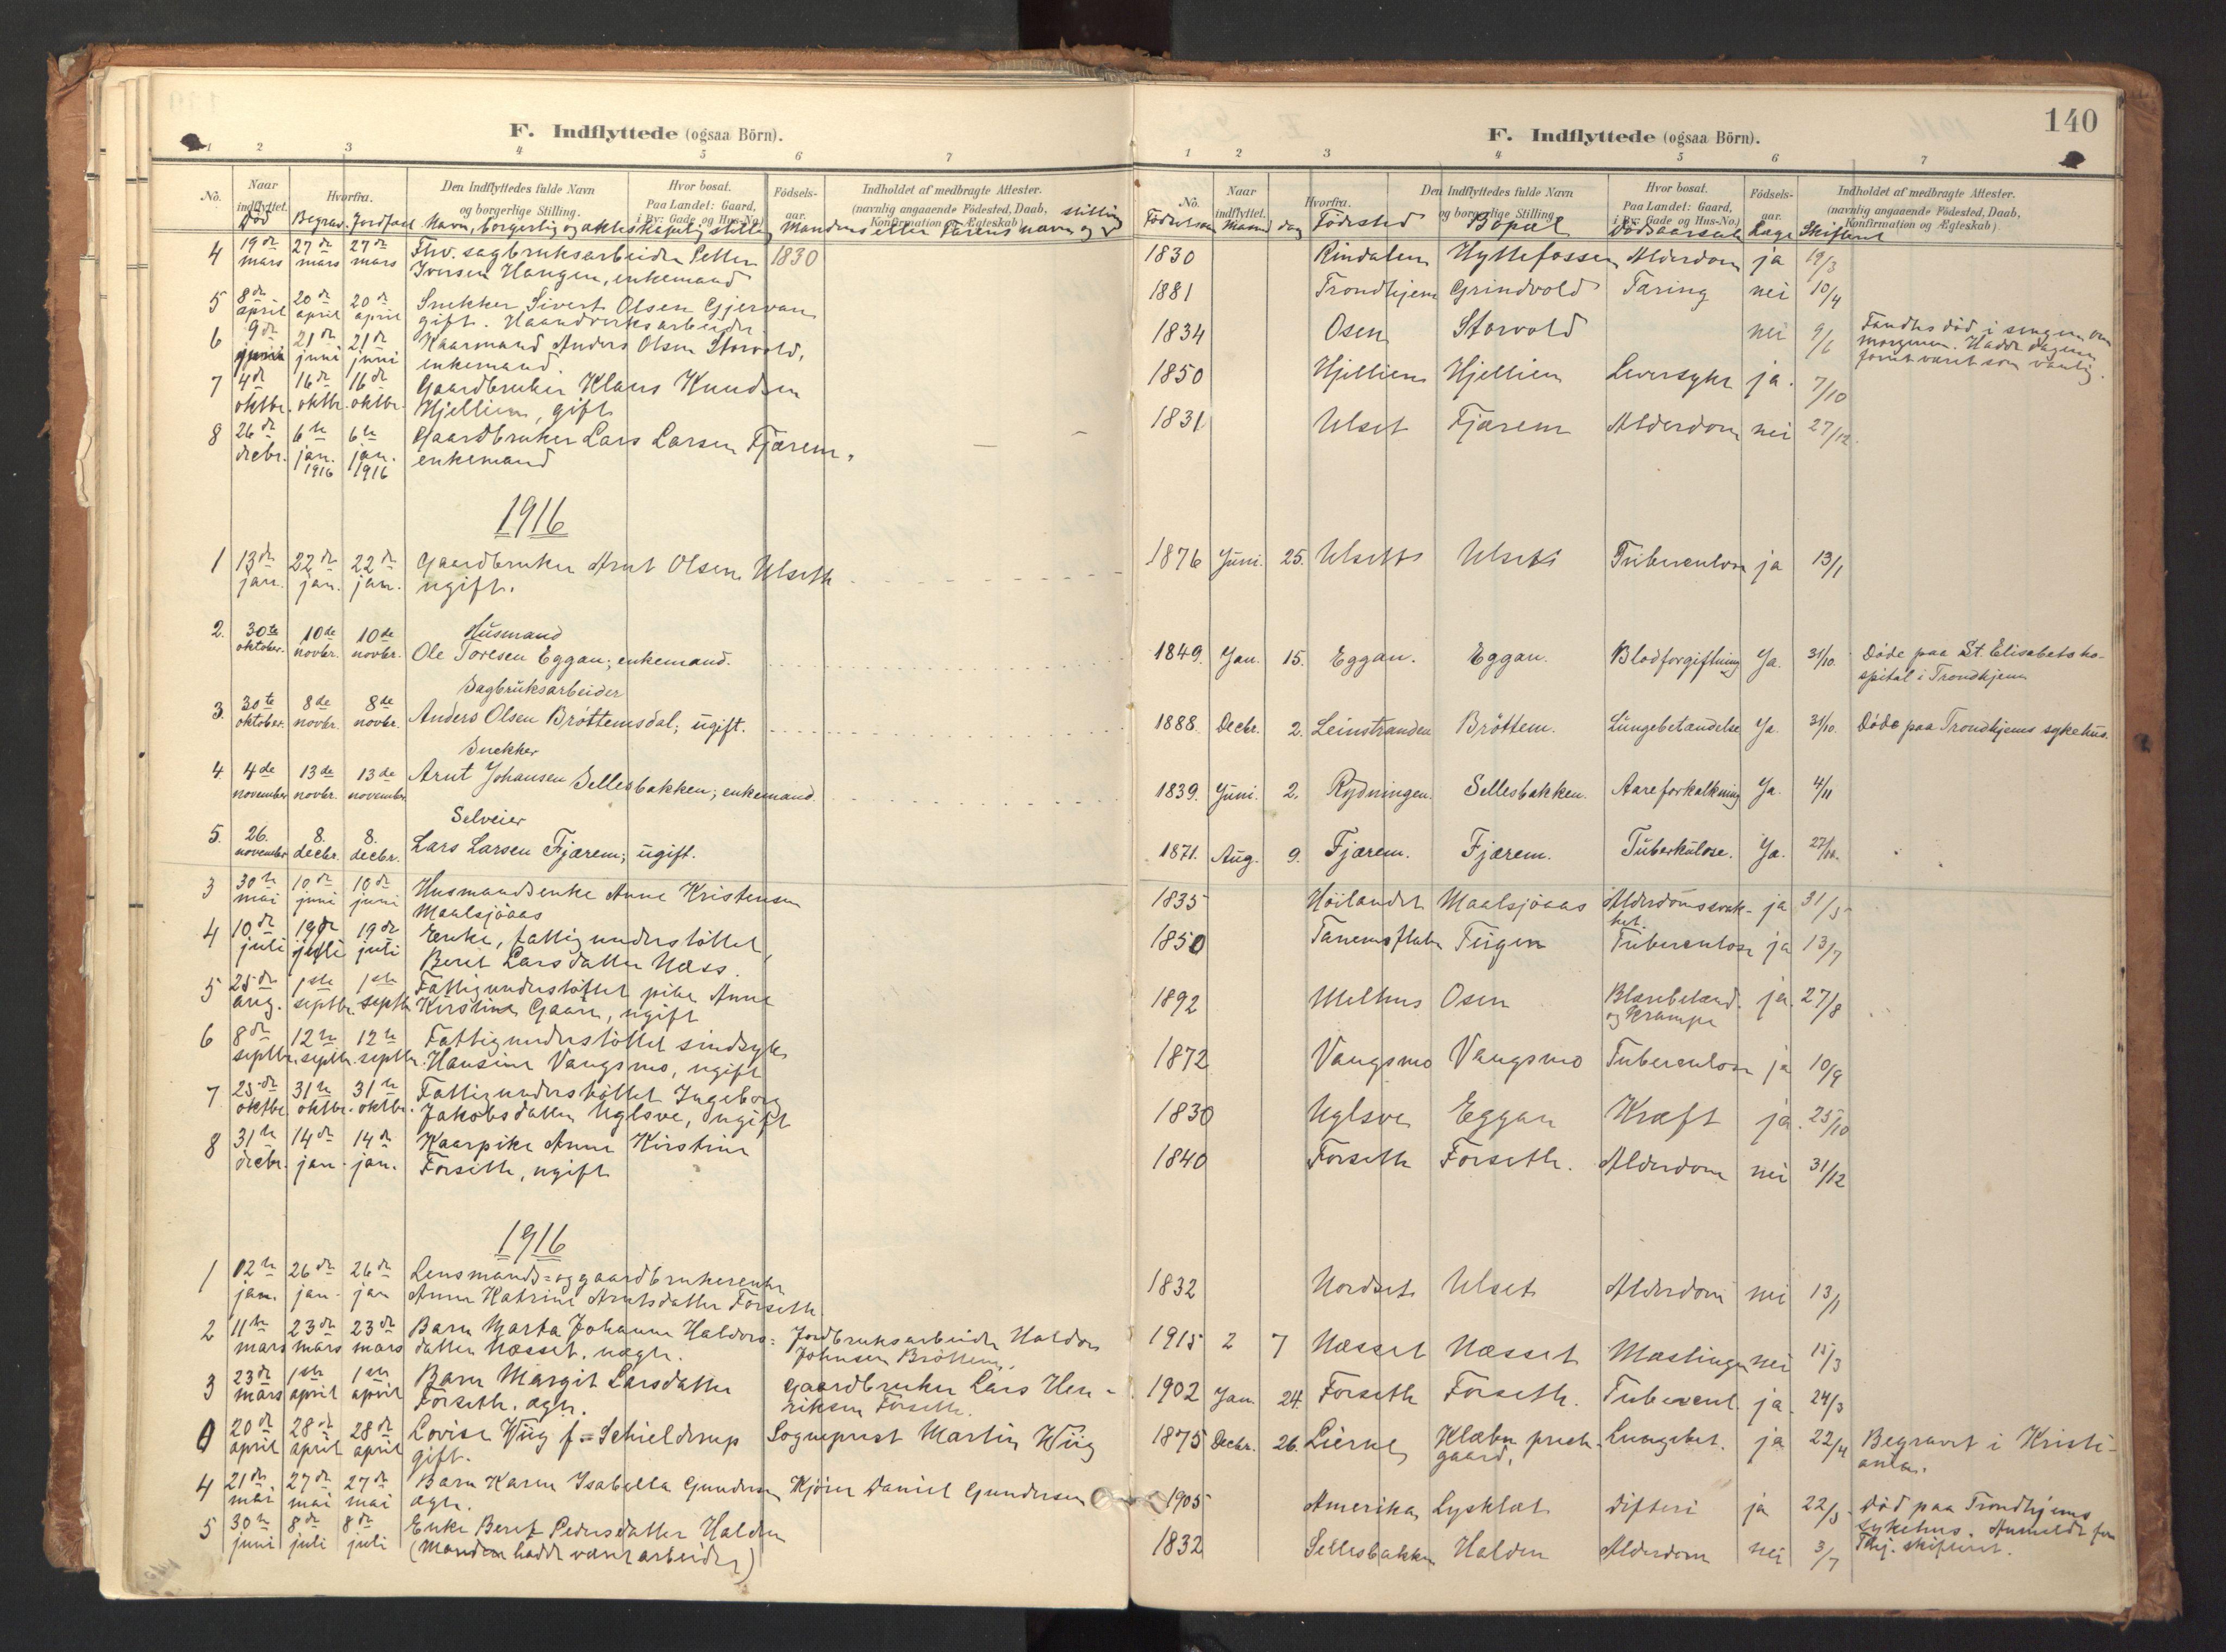 140
F. Indflyttede (ogsaa Börn).
1 2 3 4 5 6 7
No. Naar indflyttet. Hvorfra. Den Indflyttedes fulde Navn og borgerlige Stilling. Hvor bosat. Paa Landet: Gaard, i By: Gade og Hus-No.) Födsels-aar. Indholdet af medbragte Attester. (navnlig angaaende Födested, Daab, Konfirmation og Ægteskab)
Död Begrav. Jordfæst Navn, borgerlig og ekteskapelig stilling Mandens eller Farens navn og stilling
4 19de 27de 27de Fhv. sagbruksarbeider Petter 1830
mars mars mars Iversen Haugen, enkemand
5 8de 20de 20de Snekker Sivert Olsen Gjervan
april april april gift. Haandverksarbeider
6 9de 21de 21de Kaarmand Anders Olsen Storvold,
juni juni juni enkemand.
7 4de 16de 16de Gaardbruker Klaus Knudsen
oktbr. oktbr. oktbr. Hjellien, gift
8 26de 6te 6te Gaardbruker Lars Larsen Fjærem,
decbr. jan. jan. enkemand
1916 1916
1916
1 13de 22de 22de Gaardbruker Arnt Olsen Ulseth
jan. jan. jan. ugift.
2. 30te 10de 10de Husmand
oktober. novbr. novbr. Ole Toresen Eggan; enkemand.
Sagbruksarbeider
3. 30te 8de 8de Anders Olsen Bröttemsdal; ugift.
oktober. novbr. novbr.
Snekker
4. 4de 13de 13de Arnt Johansen Sellesbakken; enkemand.
november novbr. november
Selveier
5. 26. 8. 8. Lars Larsen Fjærem; ugift.
november decbr. decbr.
3 30te 10de 10de Husmandsenke Anne Kristensen
mai juni juni Maalsjöaas
4 10de 19de 19de Enke, fattigunderstöttet,
juli juli juli Beret Larsdatter Næss.
5 25de 1ste 1ste Fattigunderstöttet pike Anne
aug. septbr. septbr. Kirstine Gaare, ugift
6 8de 12te 12te Fattigunderstöttet sindsyk
septbr. septbr. septbr. Hansine Vangsmo, ugift
7 25de 31te 31te Fattigunderstöttet Ingeborg
oktbr. oktbr. oktbr. Jakobsdatter Uglsve, ugift
8 31te 14de 14de Kaarpike Anne Kirstine
decbr. jan. jan. Forseth, ugift
1916
1 12te 26de 26de Lensmands= og gaardbrukerenke
jan. jan. jan Anne Katrine Arntsdatter Forseth
2 11te 23de 23de Barn Marta Johanne Haldors= Jordbruksarbeider Haldor
mars mars mars datter Næsset, uegte. Johnsen Bröttem.
3 23de 1ste 1ste Barn Margit Larsdatter Gaardbruker Lars Hen-
mars april april Forseth, egte. riksen Forseth.
0 20de 28de 28de Lovise Wiig f.= Schielderup Sogneprest Martin Wiig
april april april gift.
4 21de 27de 27de Barn Karen Isabella Gundersen Kjörer Daniel Gundersen
mai mai mai egte.
5 30te 8de 8de Enke Beret Pedersdatter Halden
juni juli juli (Manden hadde været arbeider)
F. Indflyttede (ogsaa Börn).
1 2 3 4 5 6 7
No. Naar indflyttet. Hvorfra. Den Indflyttedes fulde Navn og borgerlige Stilling. Hvor bosat. Paa Landet: Gaard, i By: Gade og Hus-No.) Födsels-aar. Indholdet af medbragte Attester. (navnlig angaaende Födested, Daab, Konfirmation og Ægteskab).
Födselsaar Maaned dag Födested Bopæl Dödsaarsak Læge Skifteret
1830 Rindalen Hyttefossen Alderdom ja 19/3
1881 Trondhjem Grindvold Tæring nei 10/4
1834 Osen Storvold nei 9/6 Fandtes död i sengen om
morgenen. Hadde dagen
forut været som vanlig.
1850 Hjellien Hjellien Leversyke ja. 7/10
1831 Ulset Fjærem Alderdom nei 27/12.
1876 Juni. 25. Ulseth Ulseth Tuberculose ja 13/1
1849. Jan. 15. Eggan. Eggan. Blodforgiftning Ja. 31/10. Döde paa St. Elisabets ho-
spital i Trondhjem
1888 Decbr. 2. Leinstranden Bröttem. Lungebetændelse Ja. 31/10. Döde paa Trondhjems sykehus.
1839. Juni. 2. Rydningen. Sellesbakken. Aareforkalkning Ja. 4/11
1871. Aug. 9. Fjærem. Fjærem. Tuberkulose. Ja. 27/11.
1835 Höilandet Maalsjöaas Alderdomssvak-
het. ja 31/5
1850 Tanemsflaten Teigen Tuberculose ja 13/7
1892 Melhus Osen Blærebetænd.
og Krampe ja. 27/8
1872 Vangsmo Vangsmo Tuberculose ja 10/9
1830 Uglsve Eggan Kræft ja. 25/10
1840 Forseth Forseth. Alderdom nei 31/12
1832 Nordset Ulset Alderdom nei 13/1
1915 2 7 Næsset Næsset Mæslinger nei 15/3
1902 Jan. 24. Forseth Forseth. Tubercul. ja. 24/3
1875 Decbr. 26. Lierne Klæbu preste-
gaard, Lungebet. ja 22/4 Begravet i Kristi-
ania.
1905 Amerika Lysklæt Difteri ja 22/5 Död paa Trondhjems
sykehus. Anmeldt for
Thj. skifteret.
1832 Sellesbakken Halden Alderdom nei 3/7